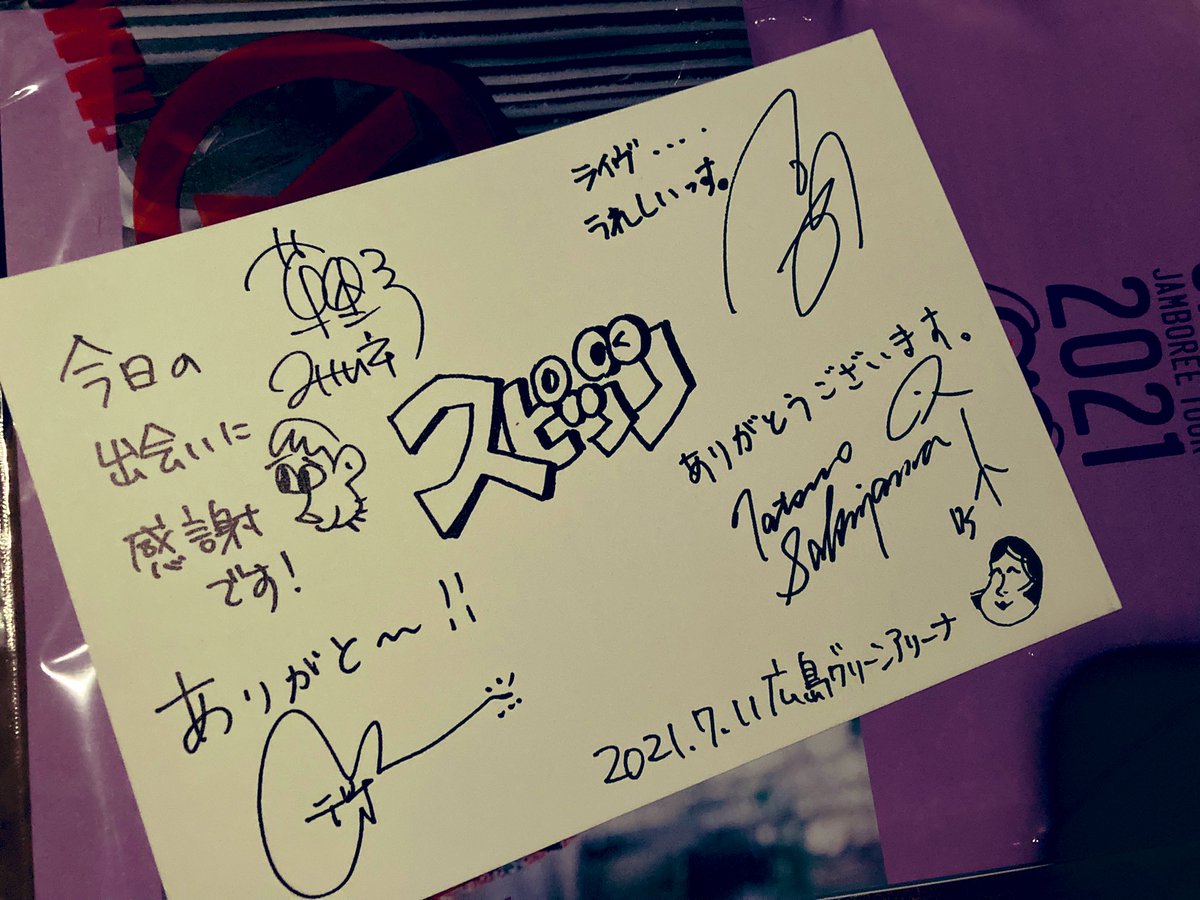 ライヴ....
うれしいっす。
今日の
出会いに
感謝
です!
スピッツ
ありがとうございます。
Tatsuo
Sakiyama
ありがと〜!!
テツヤ
2021.7.11 広島グリーンアリーナ
JAMBOREE TOUR
2021